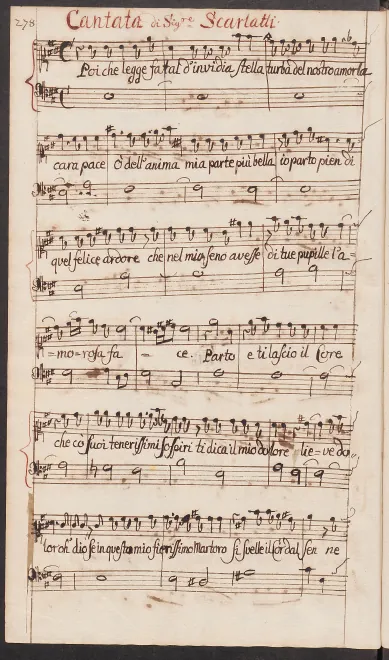 278 Cantata di Sig.re Scarlatti
Poi che legge fatal d'invidia stella turba del nostro amor la
cara pace O dell'anima mia parte più bella io parto pien di
quel felice ardore che nel mio seno avesse di tue pupille l'a=
=mo=rosa fa - ce. Parto e ti lascio il Core
che co suoi tenerissimi sospiri ti dica il mio dolore lie=ve do=
lor oh dio se in questo mio fierissimo Martoro si svelle il Cor dal sen ne